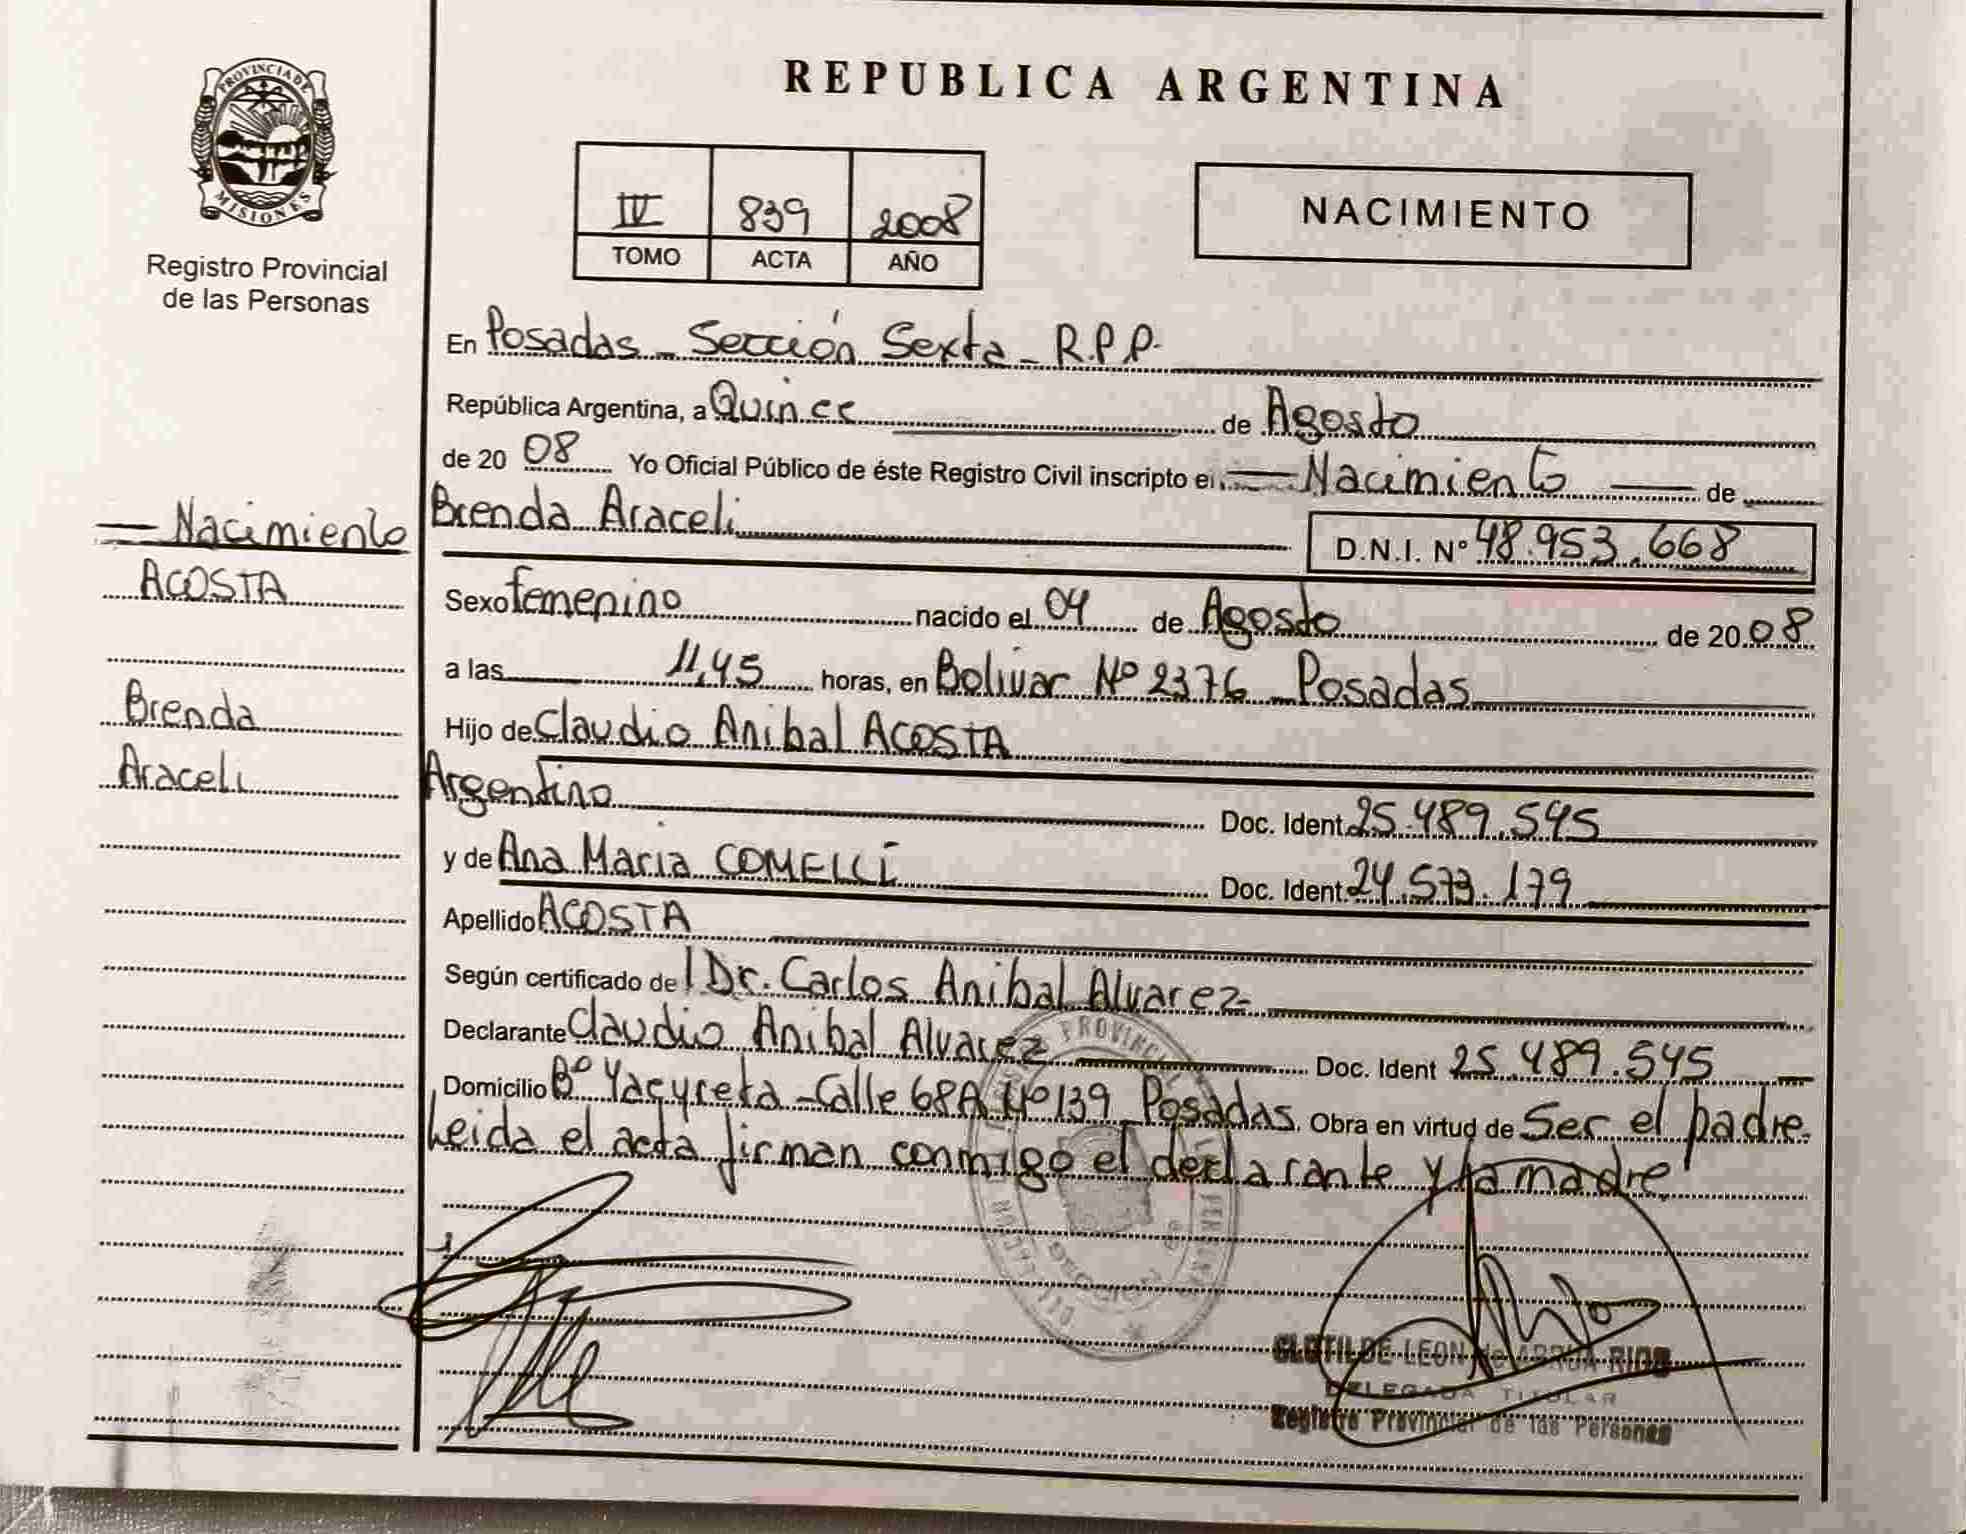 PROVINCIA DE
MISIONES
Registro Provincial
de las Personas
REPUBLICA ARGENTINA
IV 839 2008
TOMO ACTA AÑO
NACIMIENTO
En Posadas - Sección Sexta - R.P.P.
República Argentina, a Quince de Agosto
de 20 08 Yo Oficial Público de éste Registro Civil inscripto el Nacimiento de
Brenda Araceli D.N.I. Nº 48.953.668
Sexo femenino nacido el 04 de Agosto de 20 08
a las 11,45 horas, en Bolivar Nº 2376 Posadas
Hijo de Claudio Anibal ACOSTA
Argentino Doc. Ident. 25.489.545
y de Ana Maria COMELLI Doc. Ident. 24.573.179
Apellido ACOSTA
Según certificado de l Dr. Carlos Anibal Alvarez
Declarante Claudio Anibal Alvarez Doc. Ident 25.489.545
Domicilio Bº Yacyreta - Calle 68A Nº 139 Posadas. Obra en virtud de Ser el padre.
Leida el acta firman conmigo el declarante y la madre
Nacimiento
ACOSTA
Brenda
Araceli
CLOTILDE LEON de ARRUA RIOS
DELEGADA TITULAR
Registro Provincial de las Personas